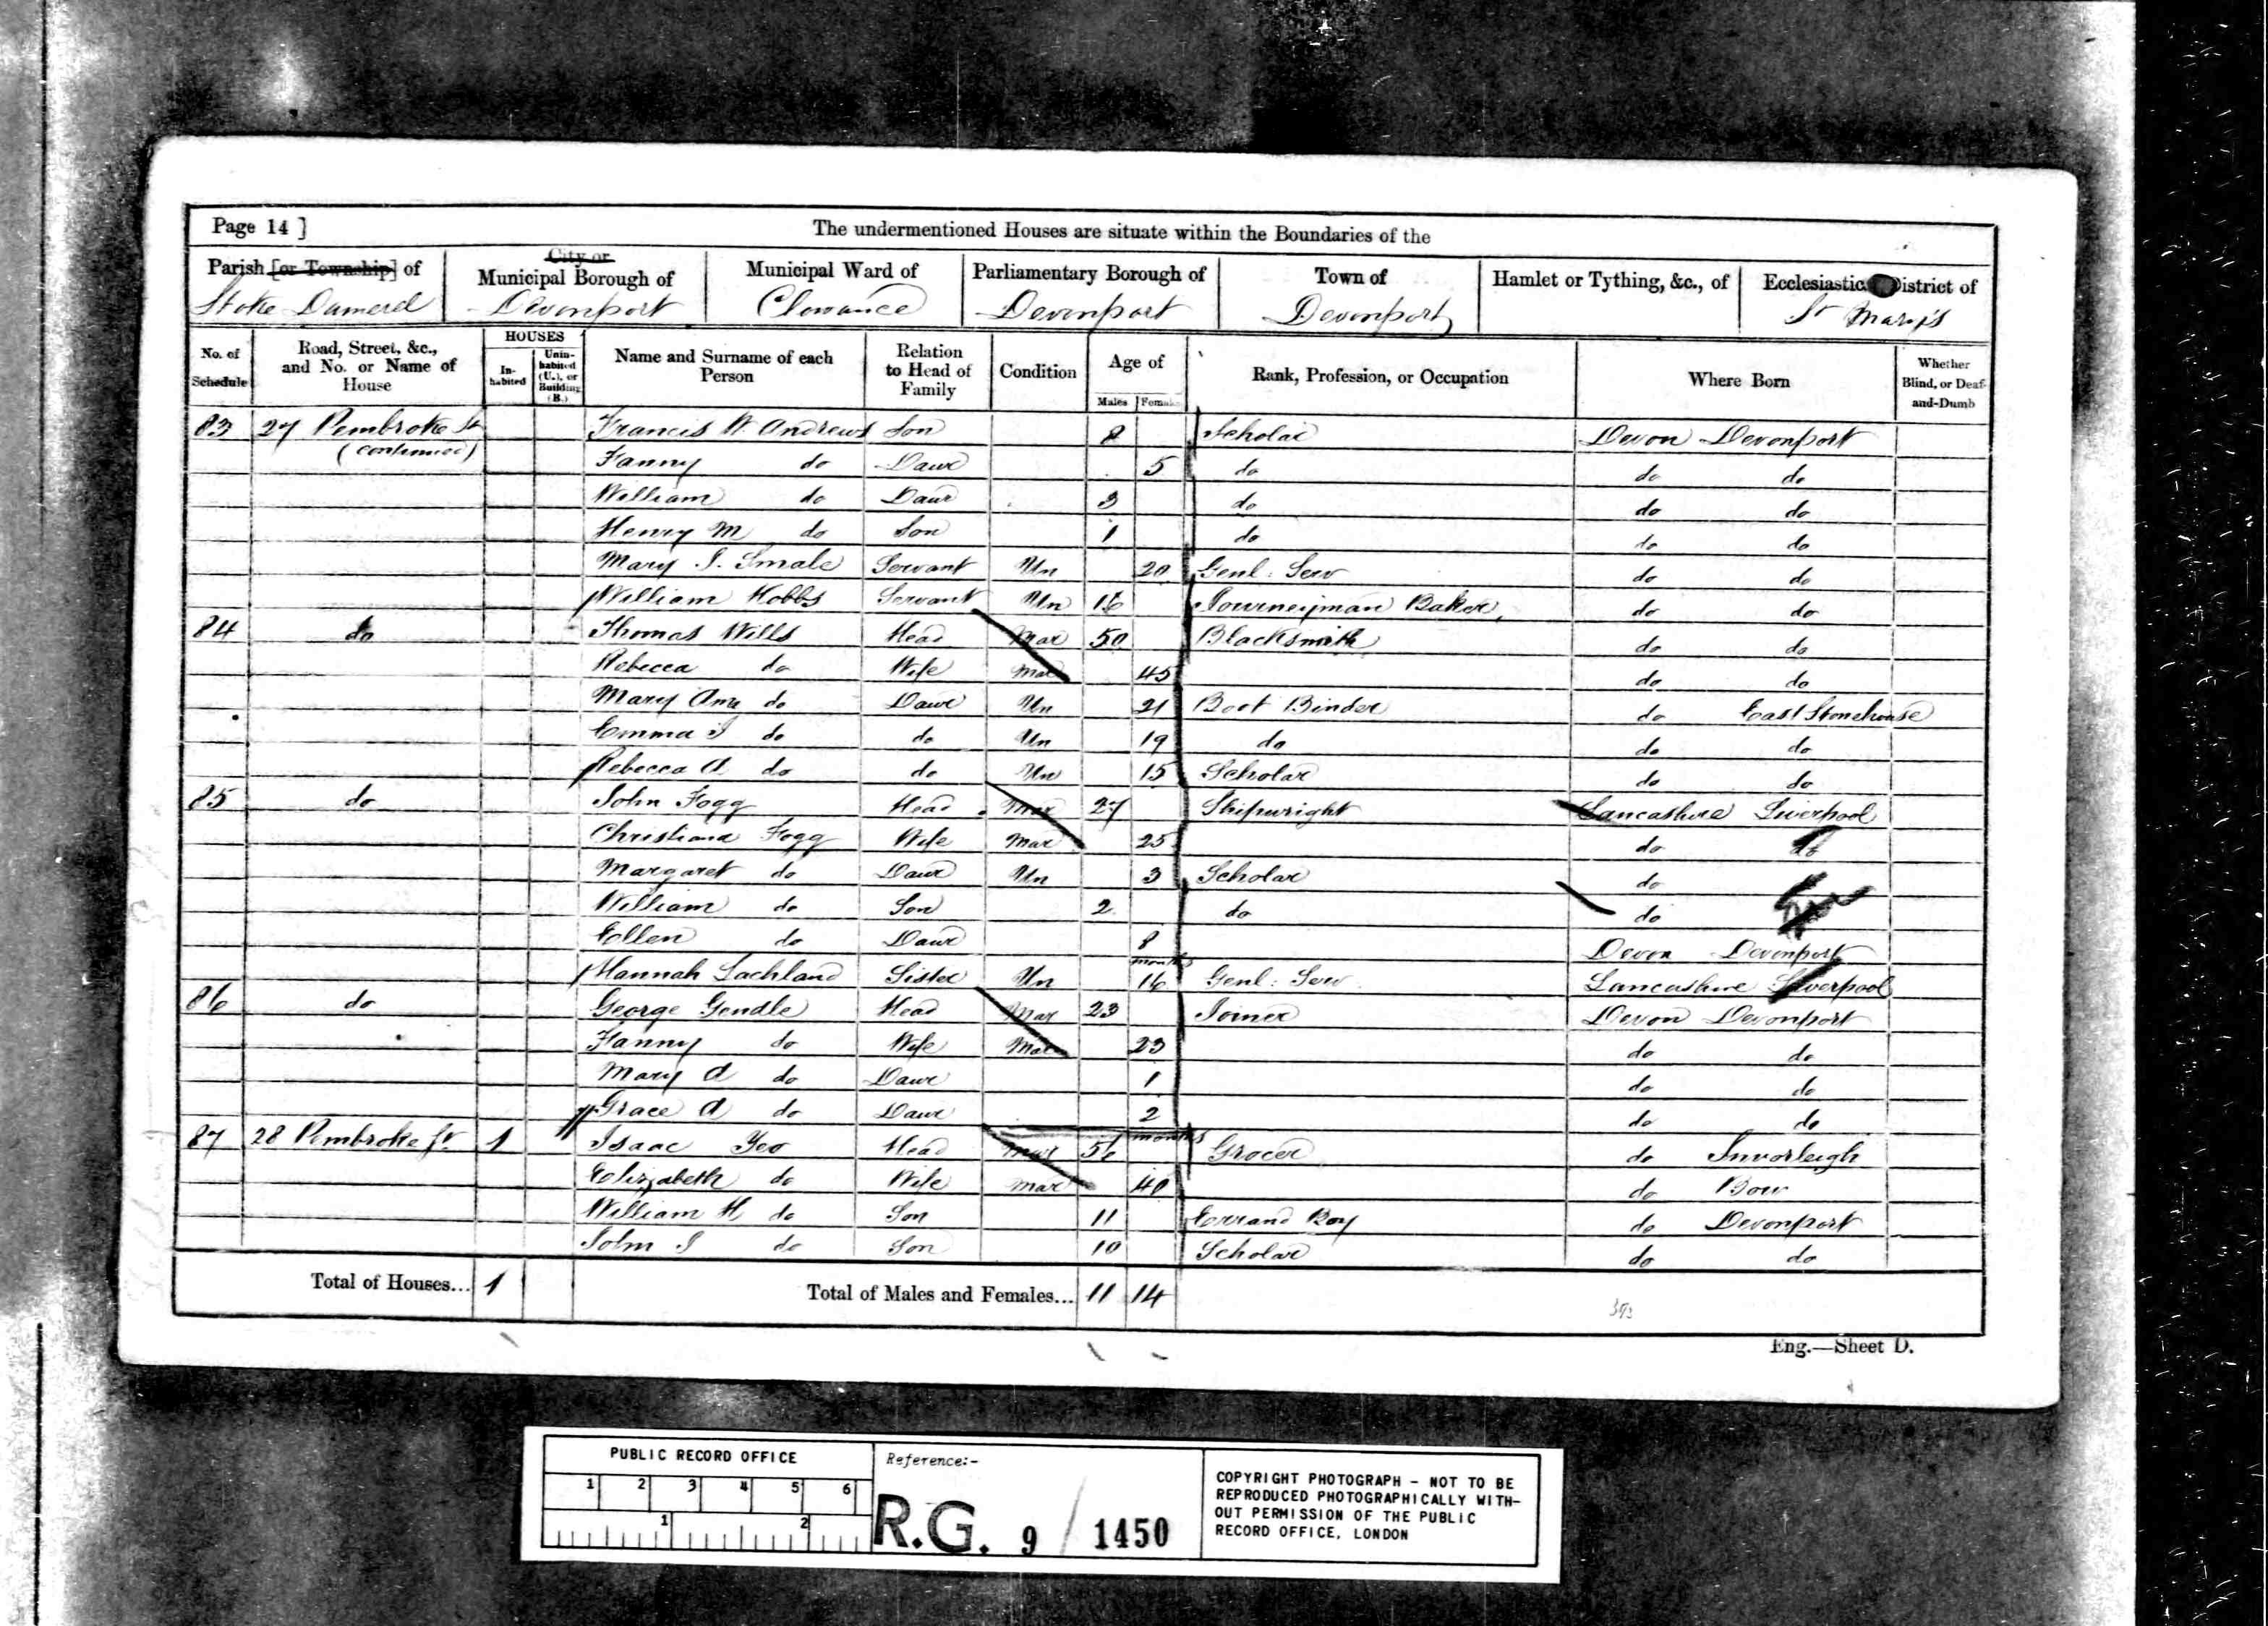 Page 14 ] The undermentioned Houses are situate within the Boundaries of the
Parish [or Township] of City or Municipal Borough of Municipal Ward of Parliamentary Borough of Town of Hamlet or Tything, &c., of Ecclesiastical District of
Stoke Damerel Devonport Clowance Devonport Devonport St Mary's
No. of Schedule Road, Street, &c., and No. or Name of House HOUSES In-habited Unin-habited (U.), or Building (B.) Name and Surname of each Person Relation to Head of Family Condition Age of Males Females Rank, Profession, or Occupation Where Born Whether Blind, or Deaf-and-Dumb
83 27 Pembroke St Francis W. Andrews Son 8 Scholar Devon Devonport
(continued) Fanny do Daur 5 do do do
William do Daur 3 do do do
Henry M do Son 1 do do do
Mary J. Smale Servant Un 20 Genl: Serv do do
William Hobbs Servant Un 16 Journeyman Baker, do do
84 do Thomas Wills Head Mar 50 Blacksmith do do
Rebecca do Wife Mar 45 do do
Mary Ann do Daur Un 21 Boot Binder do East Stonehouse
Emma J do do Un 19 do do do
Rebecca A do do Un 15 Scholar do do
85 do John Fogg Head Mar 27 Shipwright Lancashire Liverpool
Christiana Fogg Wife Mar 25 do do
Margaret do Daur Un 3 Scholar do
William do Son 2 do do
Ellen do Daur 8 months Devon Devonport
Hannah Lachland Sister Un 16 Genl: Serv Lancashire Liverpool
86 do George Gendle Head Mar 23 Joiner Devon Devonport
Fanny do Wife Mar 23 do do
Mary A do Daur 1 do do
Grace A do Daur 2 months do do
87 28 Pembroke St. 1 Isaac Yeo Head Mar 56 Grocer do Inworleigh
Elizabeth do Wife Mar 40 do Bow
William H do Son 11 Errand Boy do Devonport
John J do Son 10 Scholar do do
Total of Houses... 1 Total of Males and Females... 11 14
Eng.—Sheet D.
PUBLIC RECORD OFFICE
1 2 3 4 5 6
1 2
Reference:-
R.G. 9 / 1450
COPYRIGHT PHOTOGRAPH - NOT TO BE
REPRODUCED PHOTOGRAPHICALLY WITH-
OUT PERMISSION OF THE PUBLIC
RECORD OFFICE, LONDON